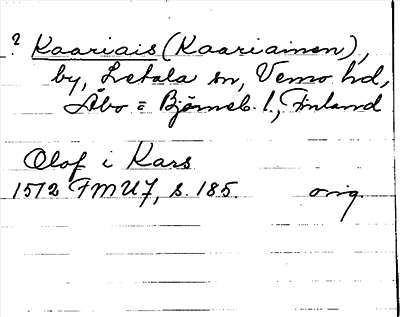 ? Kaariais (Kaariainen),
by, Letala sn, Vemo hd,
Åbo = Björneb. l., Finland
Olof i Kars
1512 FMU 7, s. 185. orig.